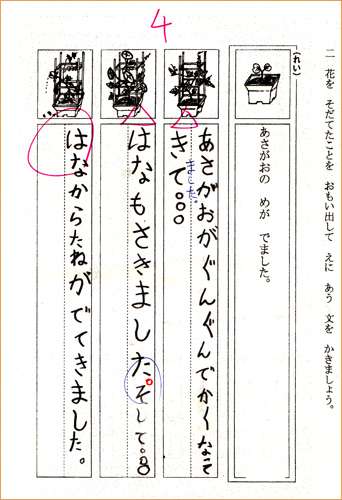 4
二 花を そだてたことを おもい出して えに あう 文を かきましょう。
(れい)
あさがおの めが でました。
あさがおがぐんぐんでかくなって
きて。。。
ました。
はなもさきました。そして。。
はなからたねがでてきました。